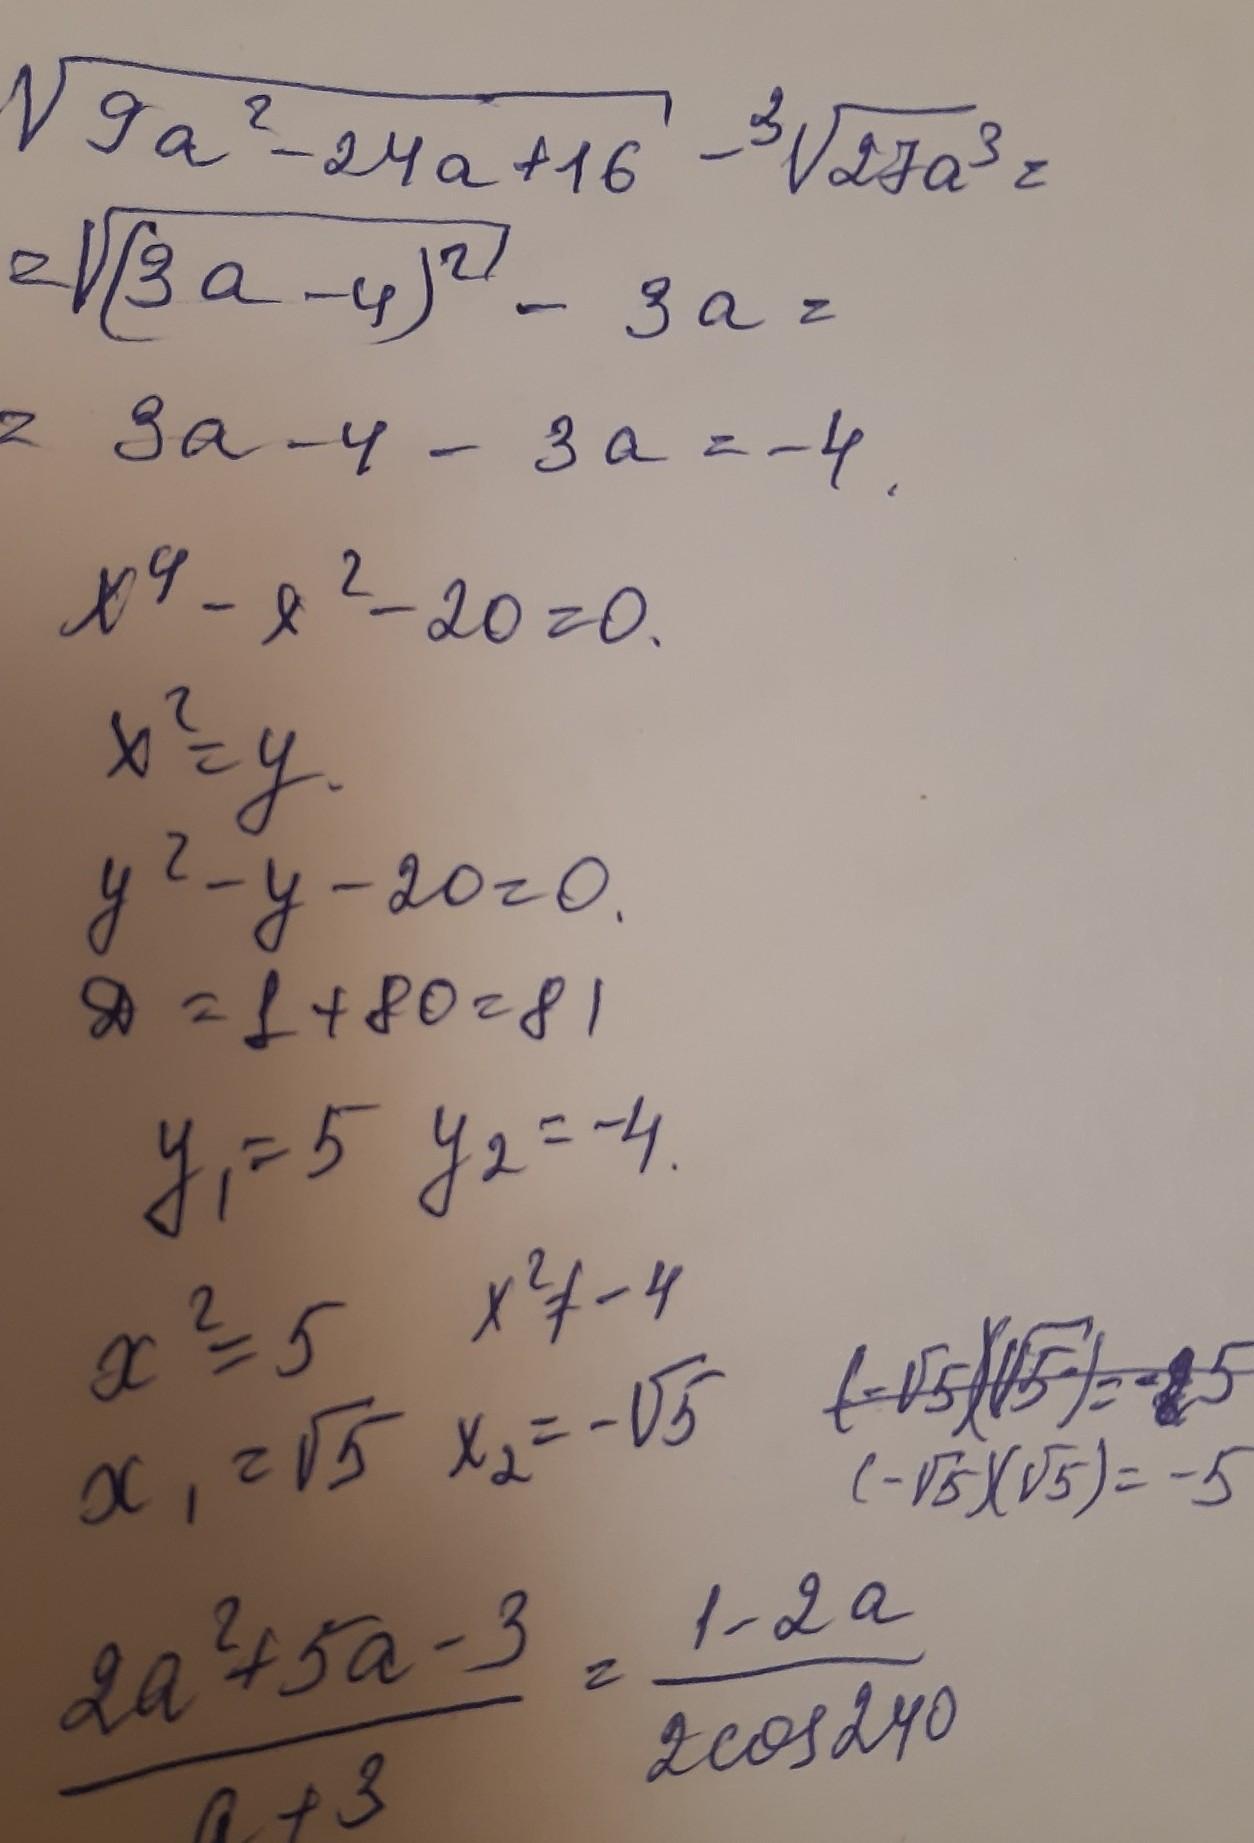 √(9a² - 24a + 16) - ³√(27a³) =
= √((3a - 4)²) - 3a =
= 3a - 4 - 3a = -4.
x⁴ - x² - 20 = 0.
x² = y.
y² - y - 20 = 0.
D = 1 + 80 = 81
y₁ = 5 y₂ = -4.
x² = 5 x² ≠ -4
x₁ = √5 x₂ = -√5
(-√5)(√5) = -25
(-√5)(√5) = -5
(2a² + 5a - 3)/(a + 3) = (1 - 2a)/(2cos240)